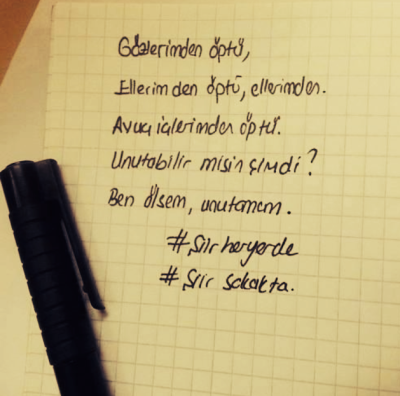 Gözlerimden öptü,
Ellerimden öptü, ellerimden.
Avuç içlerimden öptü.
Unutabilir misin şimdi?
Ben ölsem, unutamam.
#şiirheryerde
#şiir sokakta.